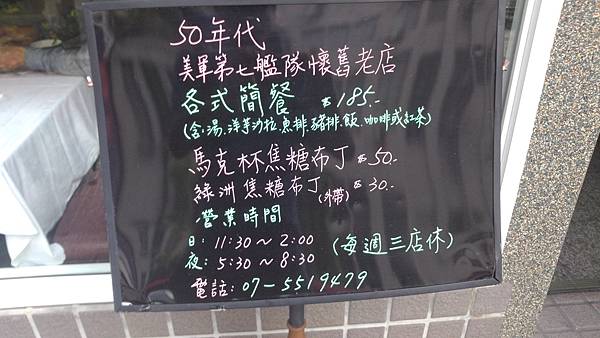 50年代
美軍第七艦隊懷舊老店
各式簡餐 $185.-
(含:湯.洋芋沙拉.魚排.豬排.飯.咖啡或紅茶)
馬克杯焦糖布丁 $50.-
綠洲焦糖布丁(外帶) $30.-
營業時間
日: 11:30～2:00 (每週三店休)
夜: 5:30～8:30
電話: 07-5519479